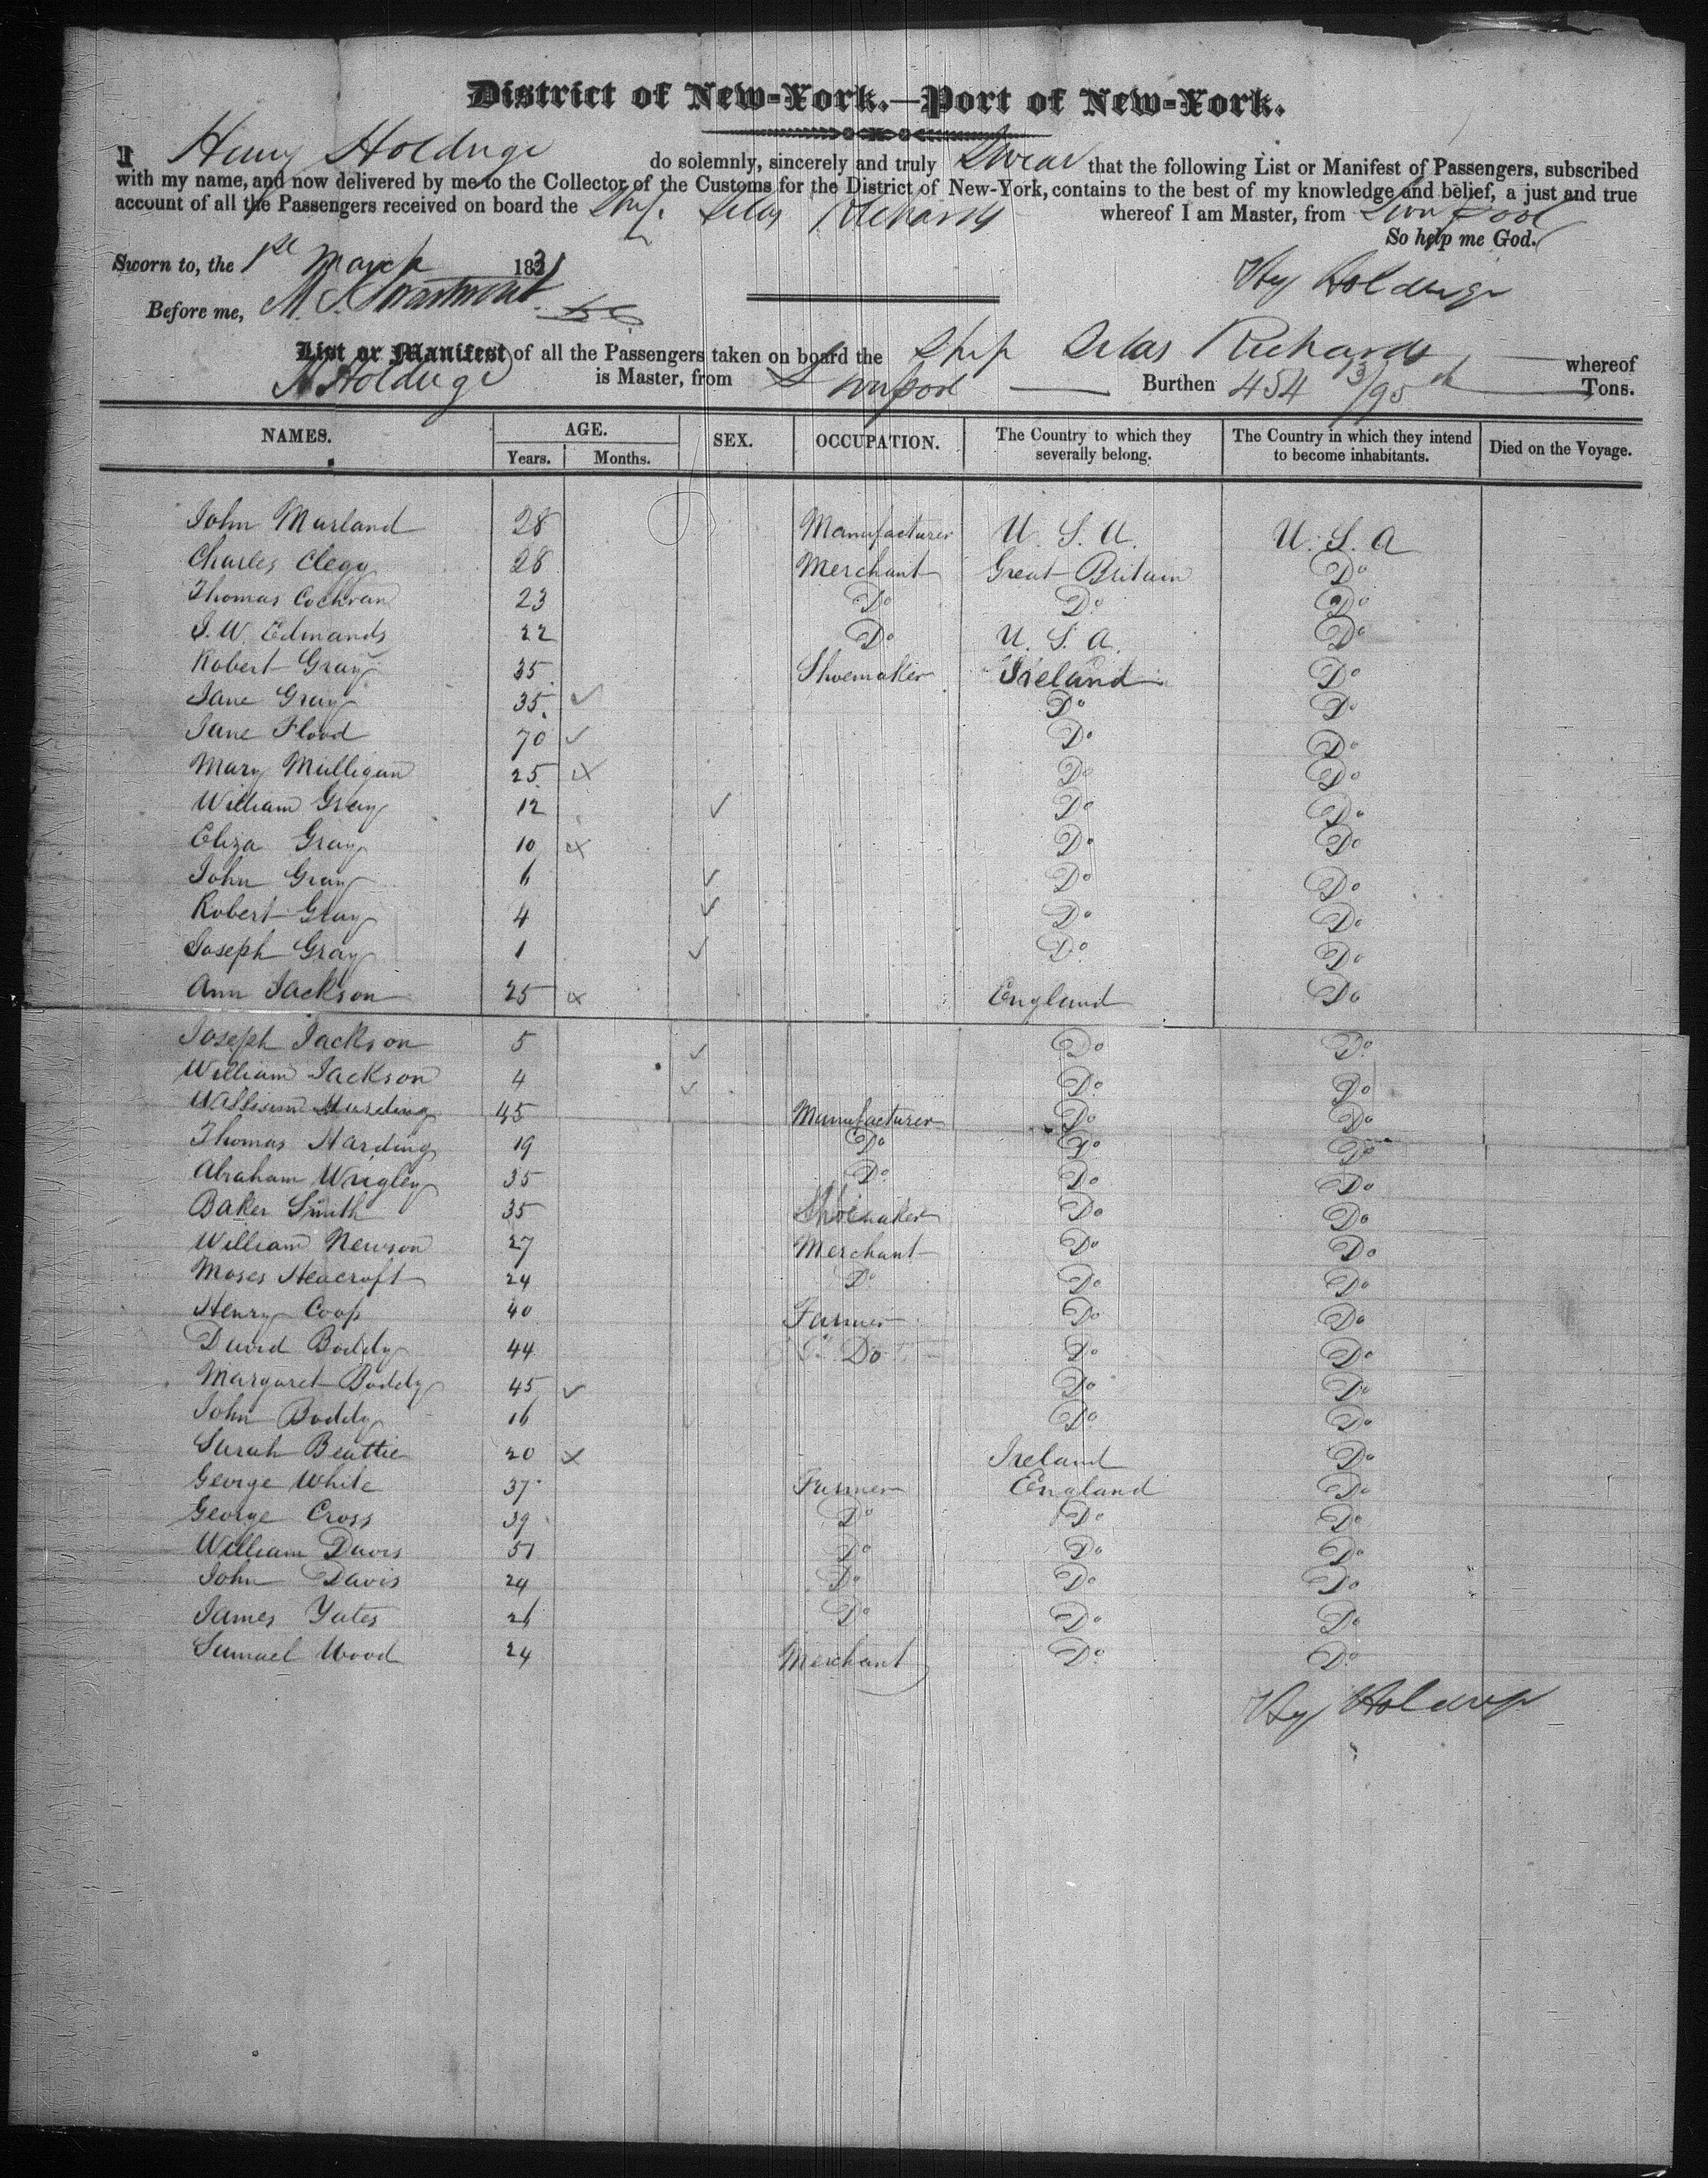 District of New-York.—Port of New-York.
I Henry Holdrege do solemnly, sincerely and truly Swear that the following List or Manifest of Passengers, subscribed
with my name, and now delivered by me to the Collector of the Customs for the District of New-York, contains to the best of my knowledge and belief, a just and true
account of all the Passengers received on board the Ship Silas Richards whereof I am Master, from Liverpool
So help me God.
Sworn to, the 1st March 1831
Hy Holdrege
Before me,
List or Manifest of all the Passengers taken on board the Ship Silas Richards whereof
H Holdrege is Master, from Liverpool Burthen 454 3/95th Tons.
NAMES. AGE. Years. Months. SEX. OCCUPATION. The Country to which they severally belong. The Country in which they intend to become inhabitants. Died on the Voyage.
John Marland 28 Manufacturer U. S. A. U. S. A
Charles Clegg 28 Merchant Great Britain Do
Thomas Cochran 23 Do Do Do
J. W. Edmands 22 Do U. S. A. Do
Robert Gray 35 Shoemaker Ireland Do
Jane Gray 35 ✓ Do Do
Jane Flood 70 ✓ Do Do
Mary Mulligan 25 x Do Do
William Gray 12 ✓ Do Do
Eliza Gray 10 x Do Do
John Gray 6 ✓ Do Do
Robert Gray 4 ✓ Do Do
Joseph Gray 1 ✓ Do Do
Ann Jackson 25 x England Do
Joseph Jackson 5 ✓ Do Do
William Jackson 4 ✓ Do Do
William Harding 45 Manufacturer Do Do
Thomas Harding 19 Do Do Do
Abraham Wrigley 35 Do Do Do
Baker Smith 35 Shoemaker Do Do
William Newson 27 Merchant Do Do
Moses Heacroft 24 Do Do Do
Henry Coop 40 Farmer Do Do
David Boddy 44 Do Do Do
Margaret Boddy 45 ✓ Do Do
John Boddy 16 Do Do
Sarah Beattie 20 x Ireland Do
George White 37 Farmer England Do
George Cross 39 Do Do Do
William Davis 51 Do Do Do
John Davis 24 Do Do Do
James Yates 26 Do Do Do
Samuel Wood 24 Merchant Do Do
Hy Holdrege